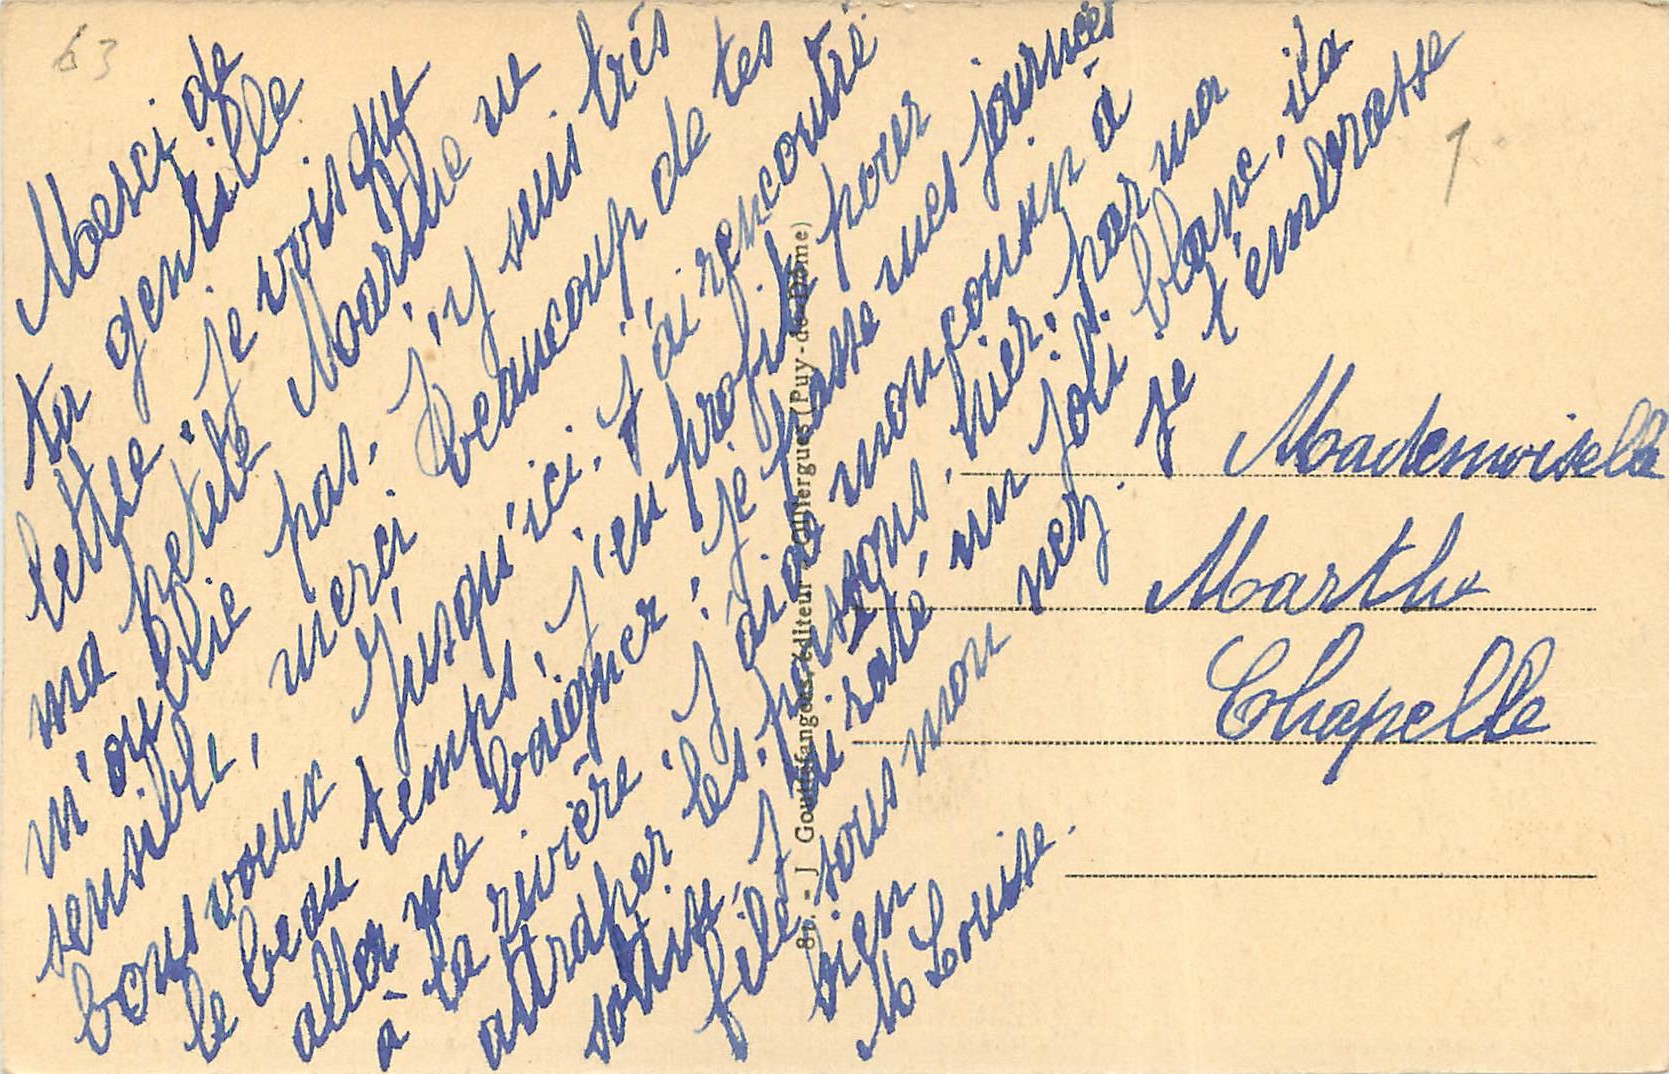 63
Merci de
ta gentille
lettre. Je vois que
ma petite Marthe ne
m'oublie pas. J'y suis très
sensible, merci beaucoup de tes
bons voeux. Jusqu'ici, J'ai rencontré
le beau temps, J'en profite pour
aller me baigner! Je passe mes journées
à la rivière. J'aide mon cousin à
attraper les poissons. hier, par ma
sottise, J'ai raté un joli blanc, il a
filé sous mon nez. Je t'embrasse
bien
M Louise.
Mademoiselle
Marthe
Chapelle
J Gouttefangeas, éditeur Olliergues (Puy-de-Dôme)